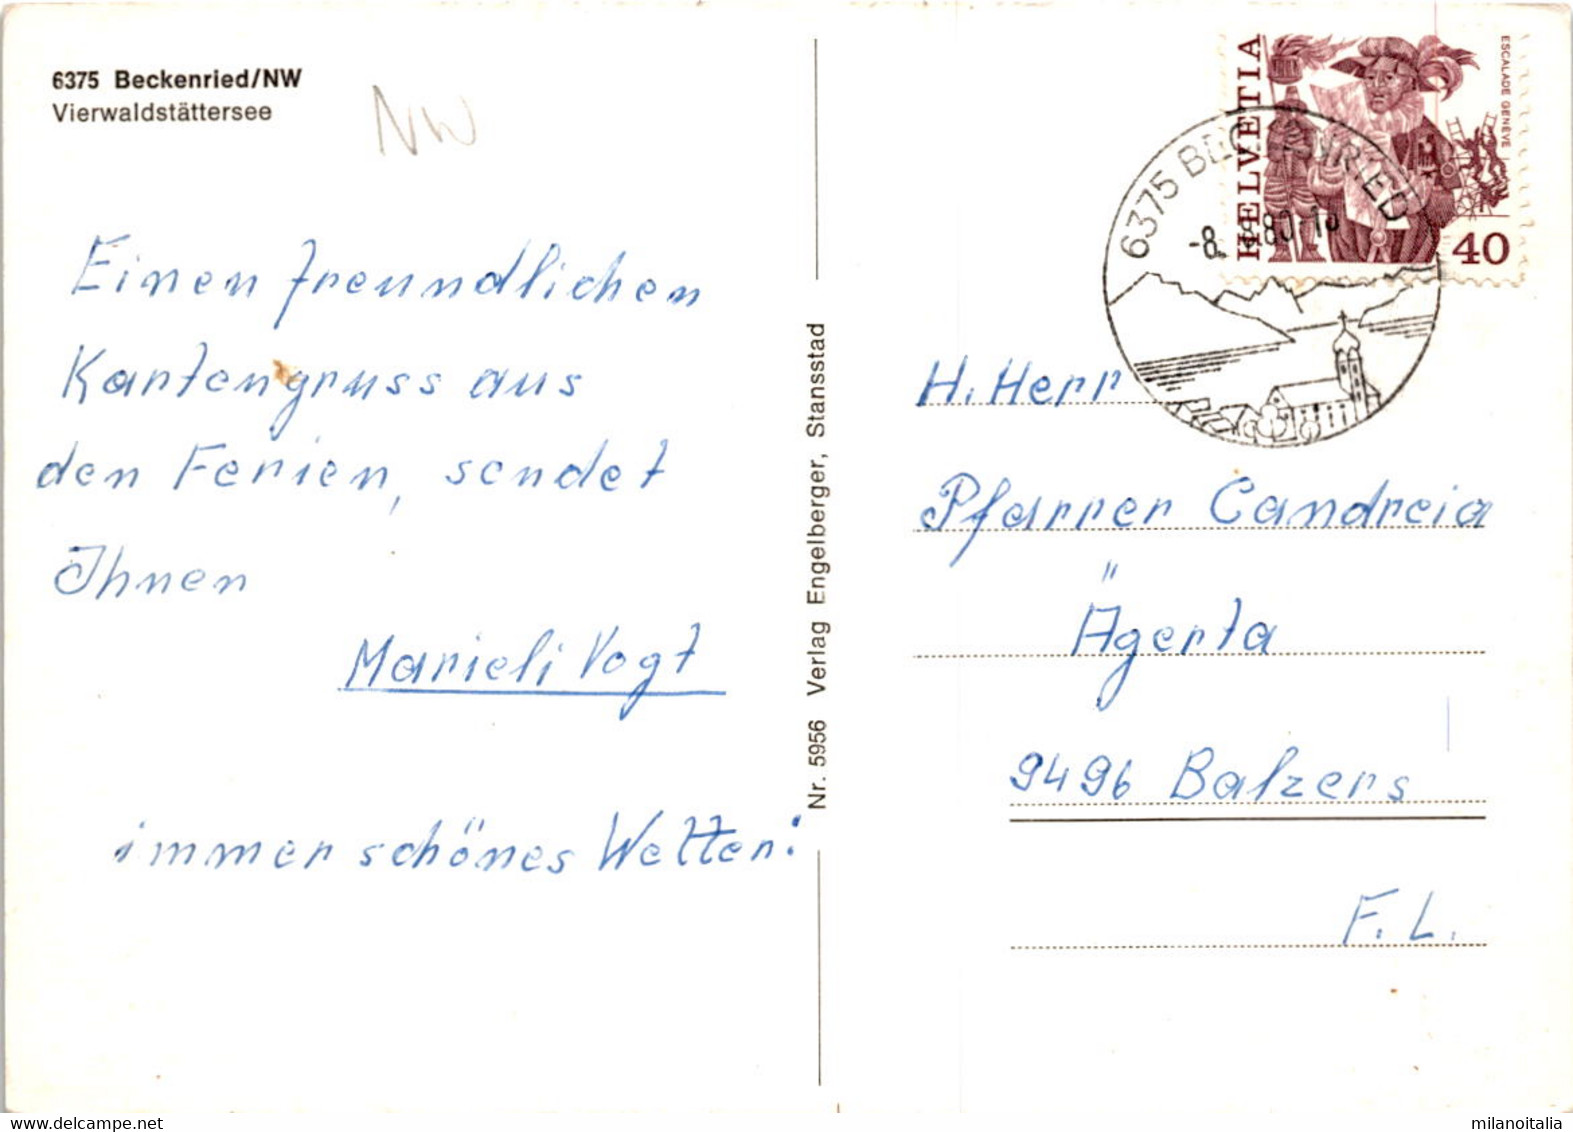 6375 Beckenried/NW
Vierwaldstättersee
NW
Einen freundlichen
Kartengruss aus
den Ferien, sendet
Ihnen
Marieli Vogt
immer schönes Wetter!
Nr. 5956 Verlag Engelberger, Stansstad
HELVETIA
ESCALADE GENÈVE
40
6375 BECKENRIED
H. Herr
Pfarrer Candreia
Ägerta
9496 Balzers
F.L.
delcampe.net
milanoitalia